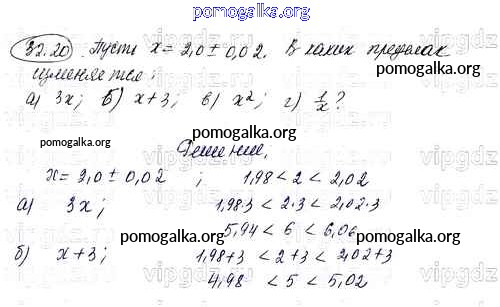 pomogalka.org
32.20 Пусть x = 2,0 ± 0,02. В каких пределах
изменяется:
а) 3x; б) x+3; в) x²; г) 1/x?
pomogalka.org
Решение.
pomogalka.org
x = 2,0 ± 0,02 ; 1,98 < 2 < 2,02
а) 3x; 1,98·3 < 2·3 < 2,02·3
5,94 < 6 < 6,06
pomogalka.org pomogalka.org
б) x+3; 1,98+3 < 2+3 < 2,02+3
4,98 < 5 < 5,02
pomogalka.org